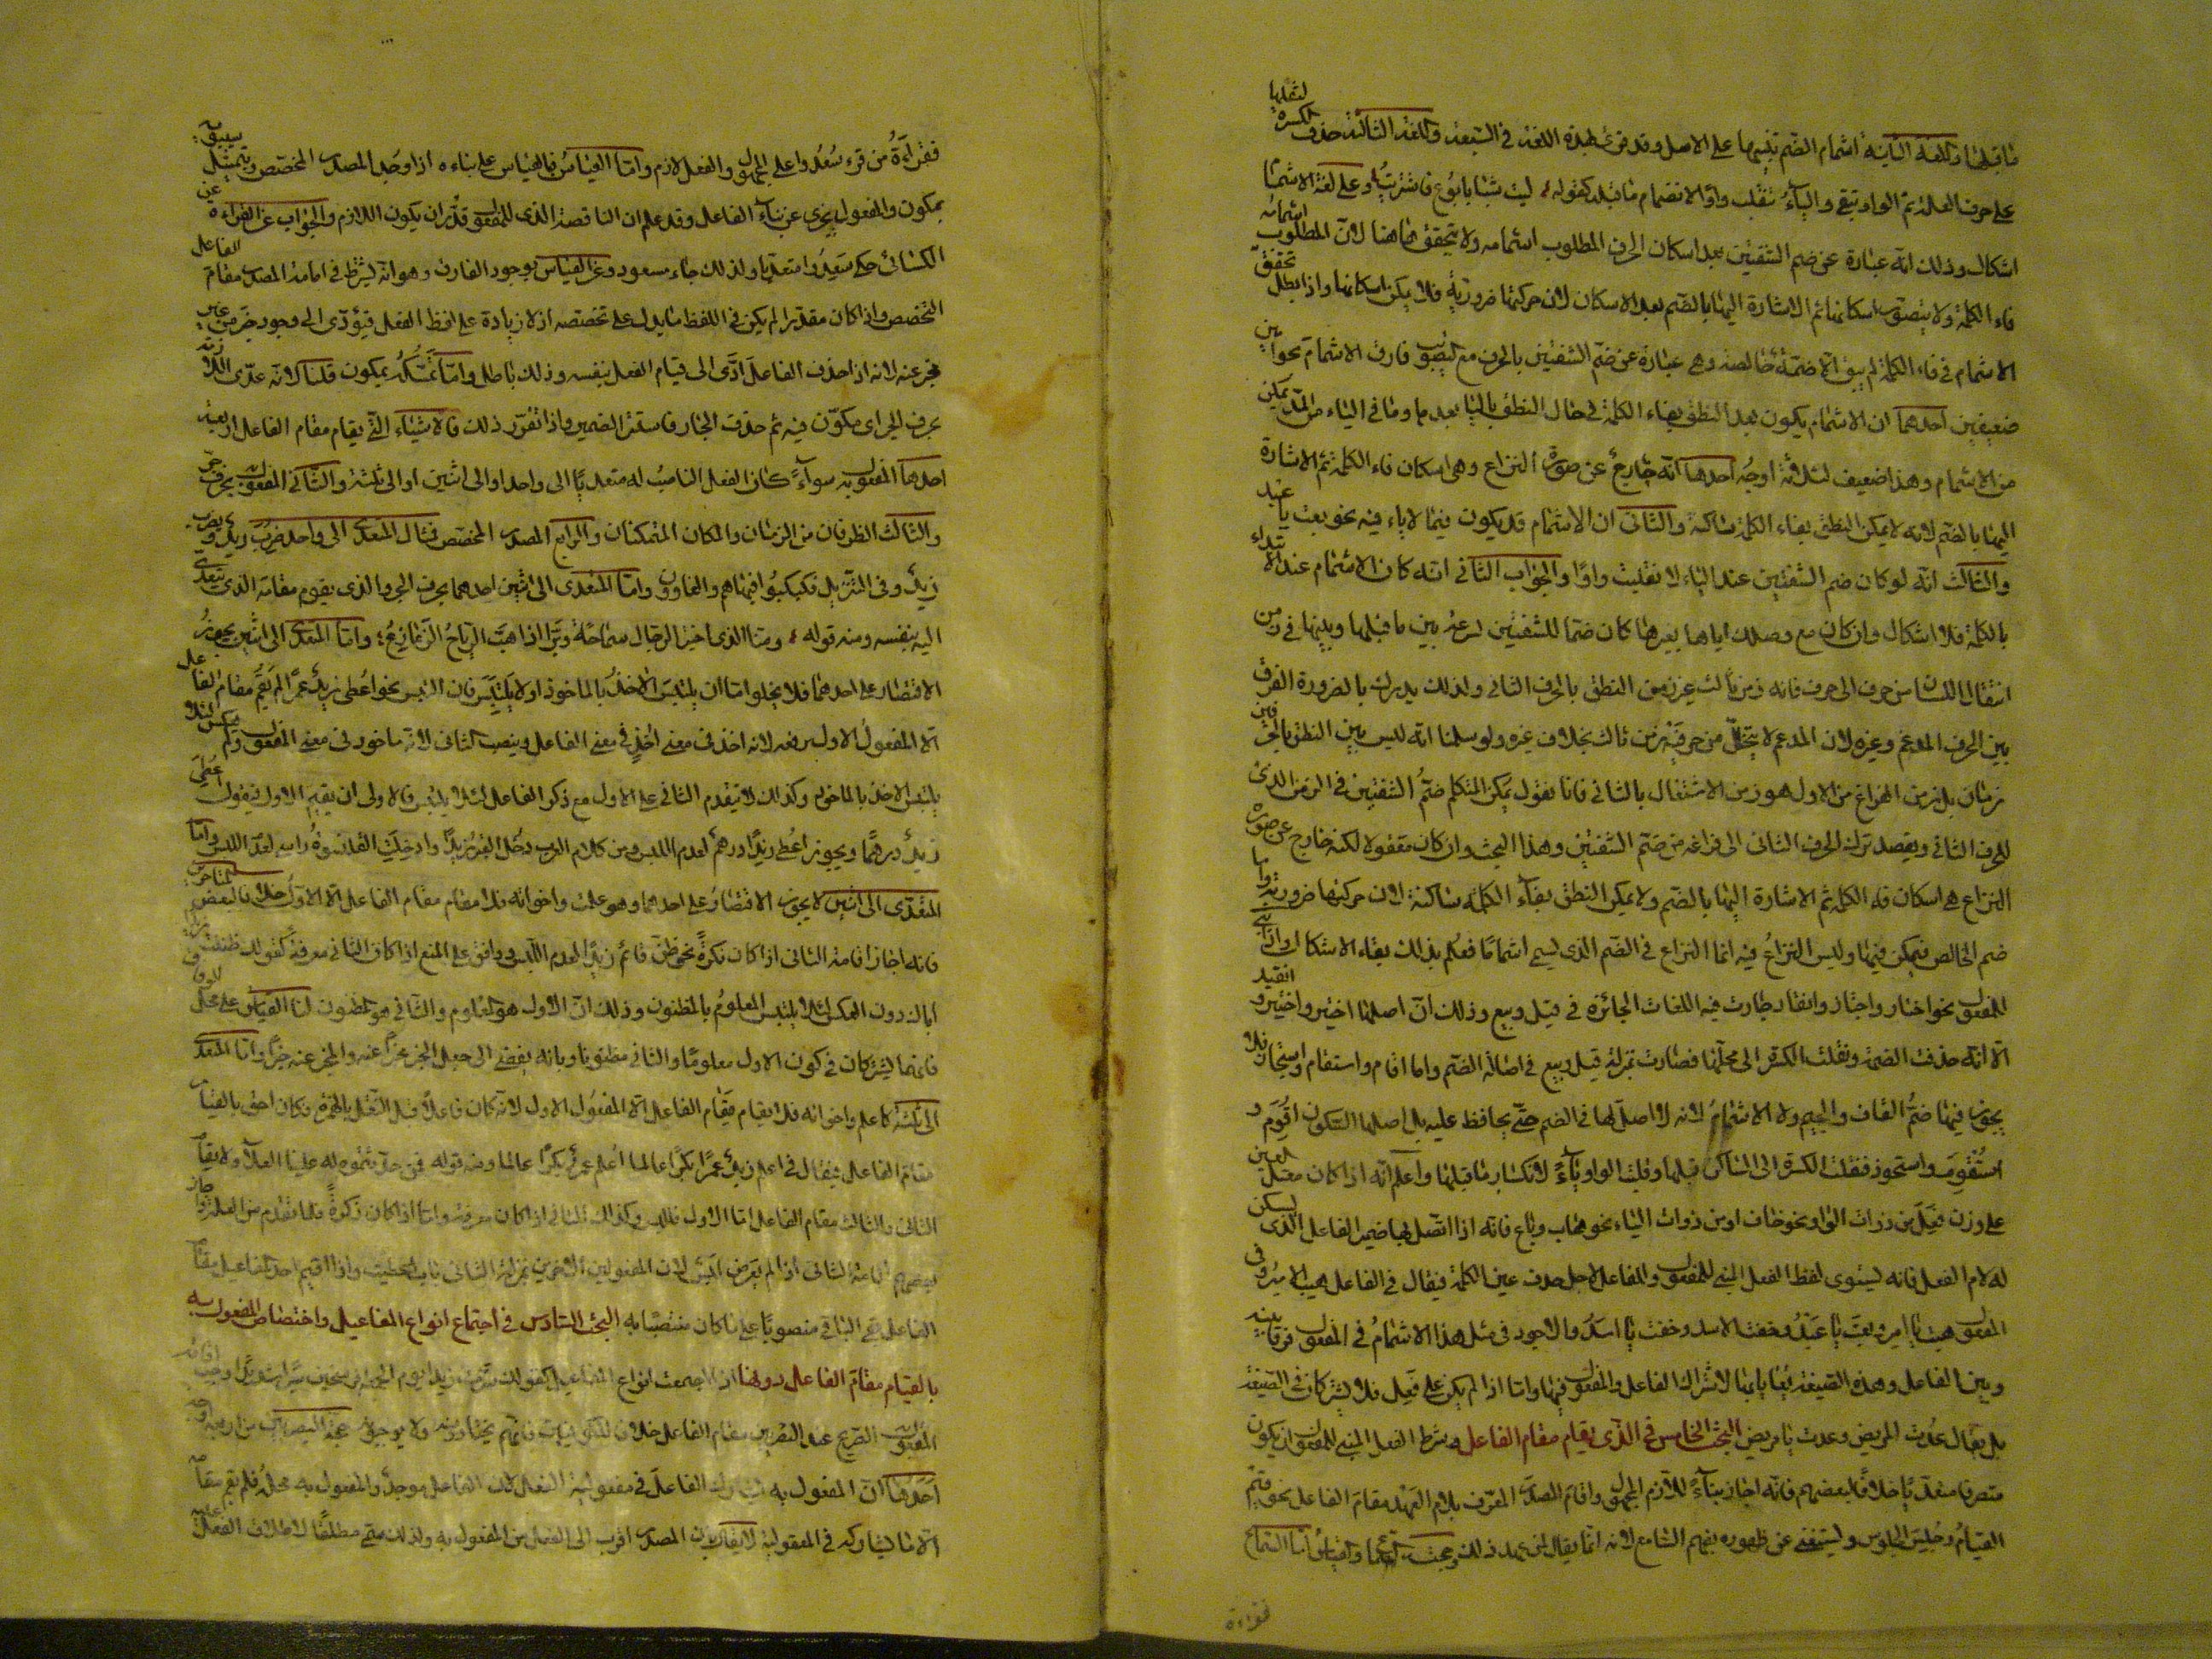 ما قبلها وكلغة الثانية اشمام الضم تنبيها على الاصل وقد قرئ بهذه اللغة في السبعة وكلغة الثالثة حذف الكسرة لثقلها
على حرف العلة ثم الواو تبقى والياء تقلب واوًا لانضمام ما قبله كقوله ليت شبابا بوع فاشتريت وعلى لغة الاشمام
اشكال وذلك انه عبارة عن ضم الشفتين بعد اسكان الحرف المطلوب اشمامه ولا يتحقق هاهنا لان المطلوب اشمامه
فاء الكلمة ولا يتصور اسكانها ثم الاشارة اليها بالضم بعد الاسكان لان حركتها ضرورية فلا يمكن اسكانها واذا بطل تحقق
الاشمام في فاء الكلمة لم يبق الا ضمة خالصة وهي عبارة عن ضم الشفتين بالحرف مع تصويب فارق الاشمام بجوابين
ضعيفين احدهما ان الاشمام يكون بعد النطق بفاء الكلمة في حال النطق بالياء بعدها وما في الياء من المد يمكن
من الاشمام وهذا ضعيف لثلاثة اوجه احدها انه خارج عن صورة النزاع وهي اسكان فاء الكلمة ثم الاشارة
اليها بالضم لانه لا يمكن النطق بفاء الكلمة ساكنة والثاني ان الاشمام قد يكون فيما لا ياء فيه نحو بعت يا عبد
والثالث انه لو كان ضم الشفتين عند الياء لانقلبت واوًا والجواب الثاني انه كان الاشمام عند الابتداء
بالكلمة فلا اشكال وان كان مع وصلك اياها بغيرها كان ضما للشفتين لسرعة بين ما قبلها وبينها في زمن
انتقال اللسان من حرف الى حرف فانه زمن ثالث غير زمن النطق بالحرف الثاني ولذلك يدرك بالضرورة الفرق
بين الحرف المدغم وغيره لان المدغم لا يتخلل من حرفيه زمن ثالث بخلاف غيره ولو سلمنا انه ليس بين النطق بالحرفين
زمان بل زمن الفراغ من الاول هو زمن الاشتغال بالثاني فانا نقول يمكن المتكلم ضم الشفتين في الزمن الذي
للحرف الثاني ويقصد ترك الحرف الثاني الى فراغه من ضم الشفتين وهذا البحث وان كان معقولا لكنه خارج عن صورة
النزاع هي اسكان فاء الكلمة ثم الاشارة اليها بالضم ولا يمكن النطق بفاء الكلمة ساكنة لان حركتها ضرورية واما
ضم الخالص فيمكن فيها وليس النزاع فيه انما النزاع في الضم الذي يسمى اشماما فعلم بذلك بقاء الاشكال
للمفعول نحو اختار واجتاز وانقاد جازت فيه اللغات الجائزة في قيل وبيع وذلك ان اصلها اختير واجتيز وانقيد
الا انه حذفت الضمة ونقلت الكسرة الى محلها فصارت بمنزلة قيل وبيع في اصالة الضم واما اقام واستقام واستجاز فلا
يجوز فيها ضم القاف والجيم ولا الاشمام لانه لا اصل لها في الضم حتى يحافظ عليه بل اصلها السكون اقوم و
استقوم واستجوز فنقلت الكسرة الى الساكن قبلها وقلبت الواو ياء لانكسار ما قبلها واعلم انه اذا كان معتل العين
على وزن فعل من ذوات الواو نحو خاف او من ذوات الياء نحو هاب وباع فانه اذا اتصل بها ضمير الفاعل الذي يسكن
له لام الفعل فانه يستوي لفظ الفعل المبني للمفعول والفاعل لاجل حذف عين الكلمة فيقال في الفاعل هبت الامير وفي
المفعول هبت يا امير وبعت يا عبد وخفت الاسد وخفت يا اسد والاجود في مثل هذا الاشمام في المفعول فرقا بينه
وبين الفاعل وهذه الصيغة لاشتراك الفاعل والمفعول فيها واما اذا لم يكن على فعل فلا يشتركان في الصيغة
بل يقال عدت المريض وعدت يا مريض البحث الخامس في الذي يقام مقام الفاعل وشرط الفعل المبني للمفعول ان يكون
متصرفا متعديا خلافا لبعضهم فانه اجاز بناء اللازم للمجهول واقام المصدر المعرف بلام العهد مقام الفاعل نحو قيم
القيام وجلس الجلوس ويستغنى عن ظهوره بفهم السامع لانه انما يقال لمن يعهد ذلك اما السماع
فقراءة
فقراءة من قرء سعدوا على المجهول والفعل لازم واما القياس فالقياس على بناءه اذا وجد المصدر المختص وتمثيل سيبويه
بمكون والمفعول يجري عن بناء الفاعل وقد علم ان الناقصة الذي للمفعول قدر ان يكون اللازم والجواب عن القراءة
الكسائي حكى سعدوا متعديا ولذلك جاء مسعود وعن القياس بوجود الفارق وهو انه يشترط في اقامة المصدر مقام الفاعل
التخصص وان كان مقدرا لم يكن في اللفظ ما يدل على تخصصه اذ لا زيادة على لفظ الفعل فيؤدي الى وجود خبر من غير
مخبر عنه لانه اذا حذف الفاعل ادى الى قيام الفعل بنفسه وذلك باطل واما تمسكه بمكون قلنا لانه عدي اللازم
بحرف الجر اي مكون فيه ثم حذف الجار فاستتر الضمير واذا تقرر ذلك فالاشياء التي يقام مقام الفاعل اربعة
احدها المفعول به سواء كان الفعل الناصب له متعديا الى واحد او الى اثنين او الى ثلثة والثاني المفعول بحرف جر
والثالث الظرفان من الزمان والمكان المتمكنان والرابع المصدر المختص فمثال المتعدي الى واحد ضرب زيد
وفي التنزيل فكبكبوا فيها هم والغاوون واما المتعدي الى اثنين احدهما بحرف الجر والذي يقوم مقامه الذي يتعدى
اليه بنفسه ومنه قوله ومنا الذي اختير الرجال سماحة وبرا اذا هب الرياح الزعازع واما المتعدي الى اثنين يجوز
الاقتصار على احدهما فلا يخلوا اما ان يلتبس الاخذ بالماخوذ او لا يلتبس فان التبس نحو اعطي زيد عمرا لم يقم مقام الفاعل
الا المفعول الاول برفعه لانه اخذ في معنى اخذ في معنى الفاعل وينصب الثاني لانه ماخوذ في معنى المفعول ولم يعكس لئلا
يلتبس الاخذ بالماخوذ وكذلك لا يتقدم الثاني على الاول مع ذكر الفاعل لئلا يلتبس فالاولى ان يقيم الاول فيقول اعطي
زيد درهما ويجوز اعطي زيدا درهم لعدم اللبس ومن كلام العرب دخل القبر زيدا وادخلت القلنسوة راسه لعدم اللبس واما
المتعدي الى اثنين لا يجوز الاقتصار على احدهما وهو علمت واخواته فلا يقام مقام الفاعل الا الاول خلافا لبعض المتاخرين
فانه اجاز اقامة الثاني اذا كان نكرة نحو ظن قائم زيدا لعدم اللبس ووافق على المنع اذا كان الثاني معرفة كقولك ظننت
اباك دون العكس لئلا يلتبس المعلوم بالمظنون وذلك ان الاول هو المعلوم والثاني هو المظنون لنا القياس على محل
فانهما يشتركان في كون الاول معلوما والثاني مظنونا وبانه يفضي الى جعل الخبر مخبرا عنه والمخبر عنه خبرا واما المتعدي
الى ثلثة كاعلم واخواته فلا يقام مقام الفاعل الا المفعول الاول لانه كان فاعلا قبل النقل بالهمزة وكان احق بالقيام
مقام الفاعل فيقال في اعلم زيد عمرا بكرا عالما اعلم عمرو بكرا عالما ومنه قوله فمن حدثتموه له علينا العلاء ولا يقام
الثاني والثالث مقام الفاعل اما الاول فللبس وكذلك الثاني اذا كان معرفة واما اذا كان نكرة فلما تقدم من العلة واجاز
بعضهم اقامة الثاني اذا لم يعرض لبس لان المفعولين الاخرين بمنزلة الثاني باب اعطيت واذا اقيم احد المفاعيل مقام
الفاعل بقي الباقي منصوبا على ما كان منتصبا به البحث السادس في اجتماع انواع المفاعيل واختصاص المفعول به
بالقيام مقام الفاعل دونها اذا اجتمعت انواع المفاعيل كقولك ضربت زيدا يوم الجمعة فرسخين سيرا شديدا وجب اقامة
المفعول به الصريح عند البصريين مقام الفاعل خلافا للكوفيين فانهم يختارونه ولا يوجبونه حجة البصريين من اربعة اوجه
احدها ان المفعول به شارك الفاعل في مفعولية الفعل لان الفاعل موجد والمفعول به محله فلم يقم مقام
الا ما يشاركه في المفعولية لا يقال ان المصدر اقرب الى الفعل من المفعول به ولذلك سمي مطلقا لاطلاق الفعل عليه